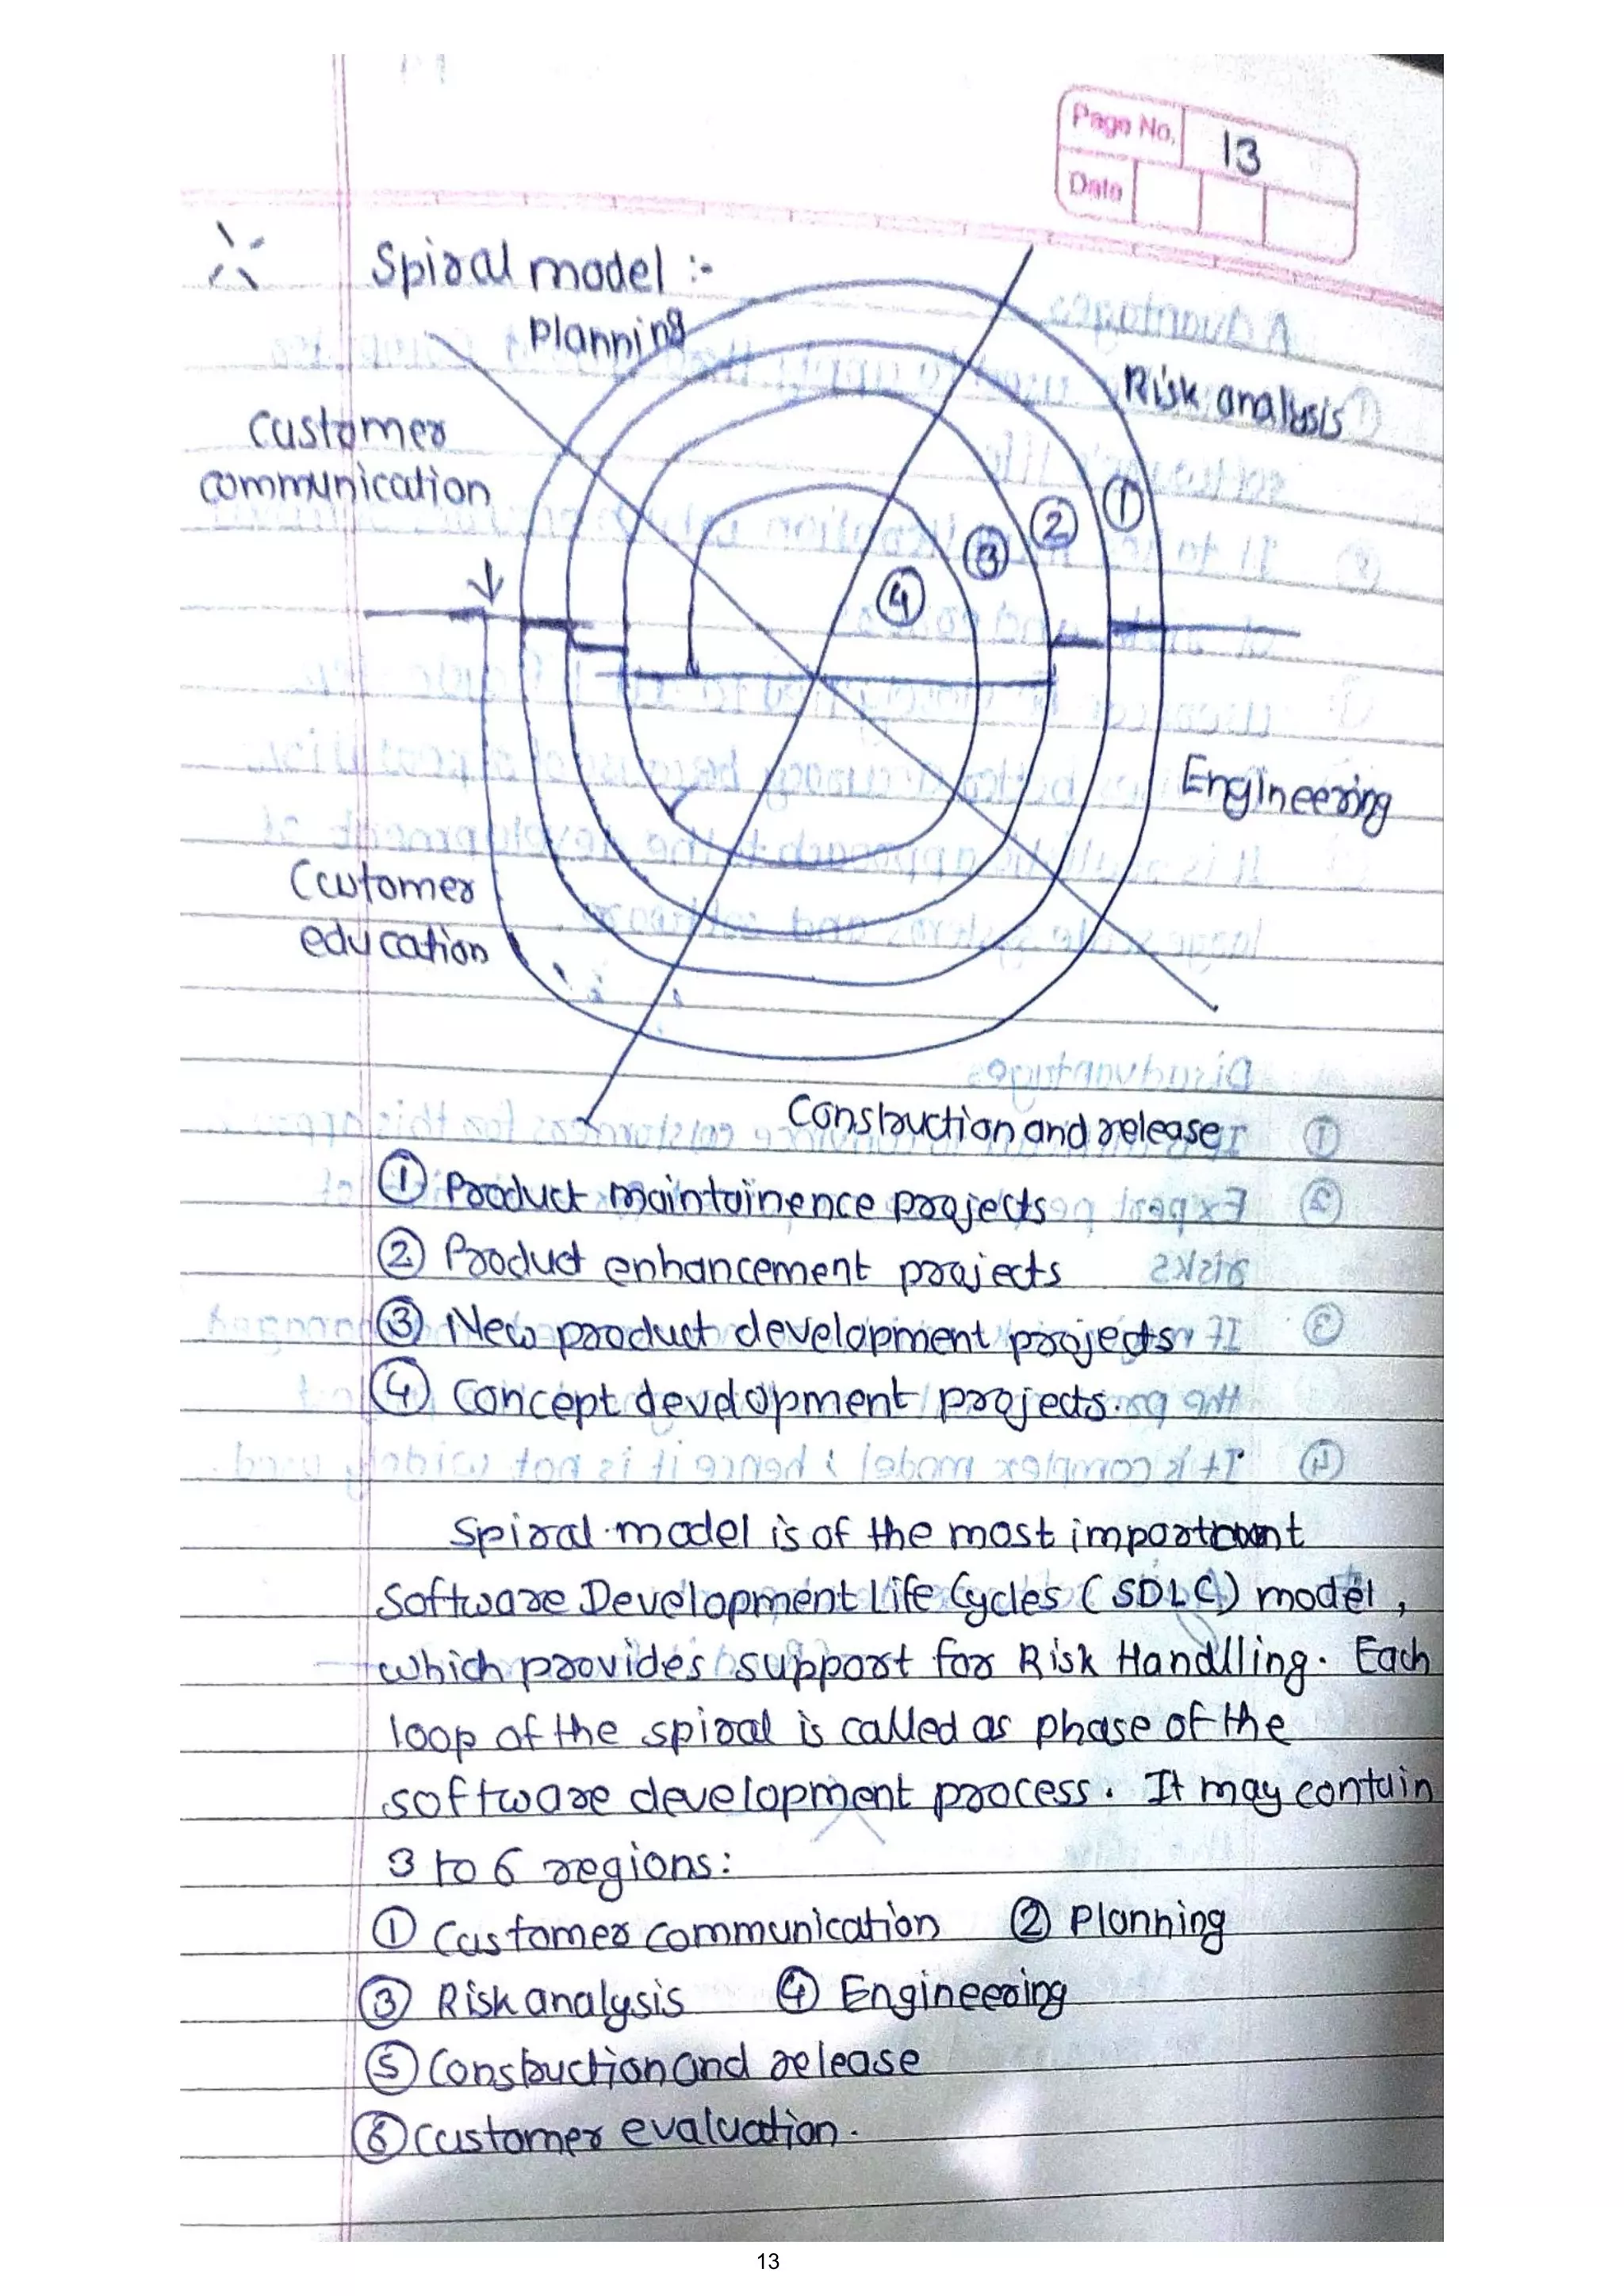 Page No. 13
Date
Spiral model :-
Planning
Risk analysis
Customer
communication
①
②
③
④
Engineering
Ccutomer
education
Construction and release
① Product maintainence projects
② Product enhancement projects
③ New product development projects
④ Concept development projects.
Spiral model is of the most important
Software Development Life Cycles (SDLC) model,
which provides support for Risk Handlling. Each
loop of the spiral is called as phase of the
software development process. It may contain
3 to 6 regions:
① Customer communication ② Planning
③ Risk analysis ④ Engineering
⑤ Construction and release
⑥ Customer evaluation.
13